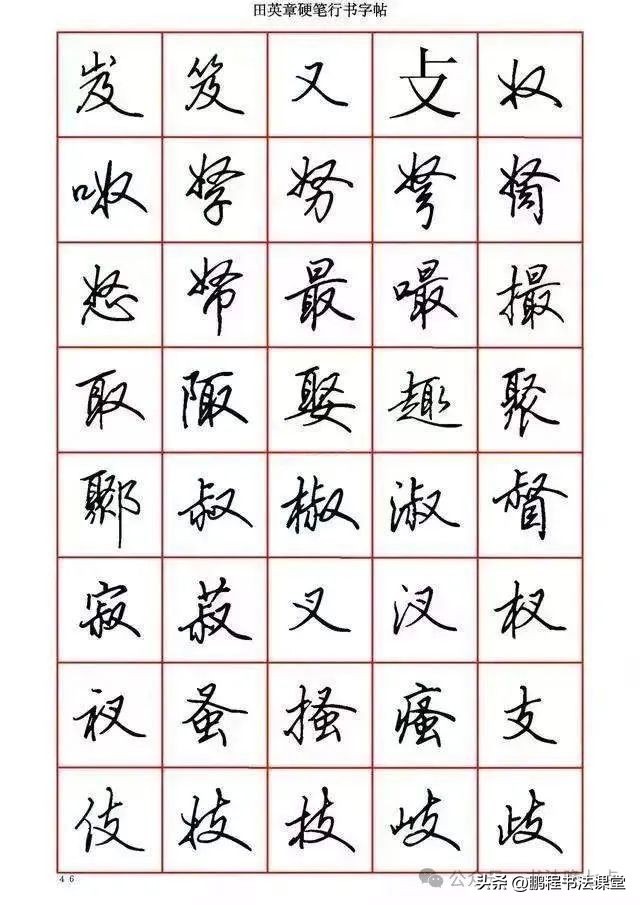 田英章硬笔行书字帖
岌 笈 又 攴 奴
呶 孥 努 弩 胬
怒 帑 最 嘬 撮
取 陬 娶 趣 聚
鄹 叔 椒 淑 督
寂 菽 叉 汊 杈
衩 蚤 搔 瘙 支
伎 妓 技 岐 歧
46
公众号
头条@鹏程书法课堂